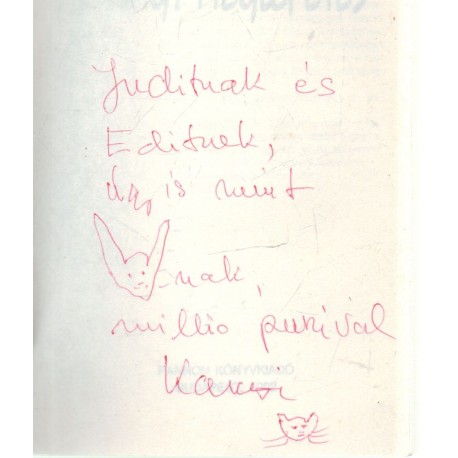 Juditnak és
Editnek,
úgy is mint
-nak,
millió puszival
KÖNYVKIADÓ